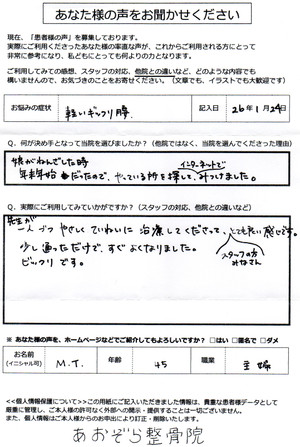 あなた様の声をお聞かせください
現在、「患者様の声」を募集しております。
実際にご利用くださったあなた様の率直な声が、これからご利用される方にとって
非常に参考になり、私どもにとっても何よりの力となります。
ご利用してみての感想、スタッフの対応、他院との違いなど、どのような内容でも
構いませんので、お気づきのことをお寄せください。（文章でも、イラストでも大歓迎です）
お悩みの症状 軽いギックリ腰 記入日 26年1月24日
Q．何が決め手となって当院を選びましたか？（他院ではなく、当院を選んでくださった理由）
娘がねんざした時
年末年始だったので、やっている所をインターネットで探して、みつけました。
Q．実際にご利用してみていかがですか？（スタッフの対応、他院との違いなど）
先生が
一人づつやさしくていねいに治療してくださって、とても良い感じです。
スタッフの方
みなさん
少し通っただけで、すぐよくなりました。
ビックリです。
※ あなた様の声を、ホームページなどでご紹介してもよろしいですか？ □はい □匿名で □ダメ
お名前（イニシャル可） M.T. 年齢 45 職業 主婦
<<個人情報保護について>>この用紙にご記入いただきました情報は、貴重な患者様データとして
厳重に管理し、ご本人様の許可なく外部への開示・提供することは一切ございません。
また、個人情報はご本人様からのお申出により訂正・削除いたします。
あおぞら整骨院